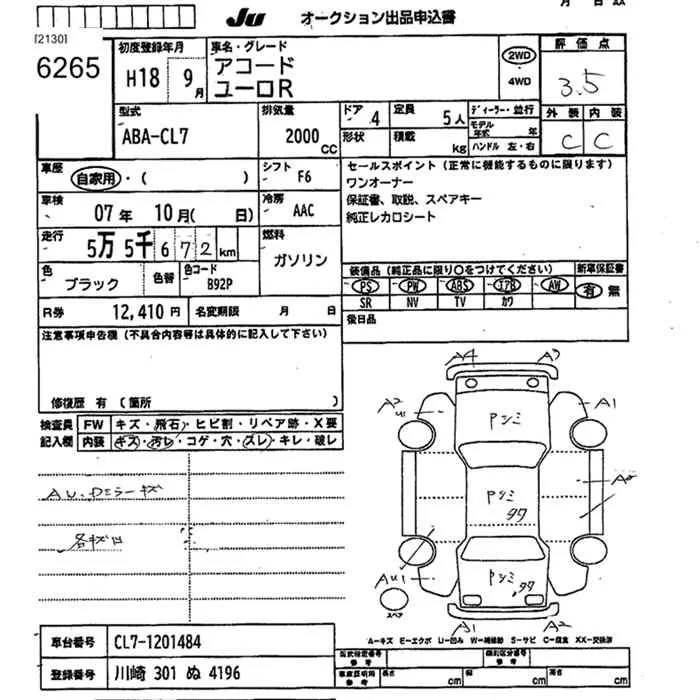 JU オークション出品申込書
[2130]
6265
初度登録年月
H18 9月
車名・グレード
アコード
ユーロR
2WD
4WD
評価点
3.5
型式
ABA-CL7
排気量
2000 CC
ドア 4
定員 5人
ディーラー・並行
モデル年式 年
形状
積載 kg
ハンドル 左・右
外装 内装
C C
車歴
自家用・( )
シフト
F6
セールスポイント(正常に機能するものに限ります)
ワンオーナー
保証書、取説、スペアキー
純正レカロシート
車検
07年 10月( 日)
冷房
AAC
走行
5万5千672km
燃料
ガソリン
色
ブラック
色替
色コード
B92P
装備品(純正品に限り○をつけてください)
新車保証書
PS PW ABS エアB AW
有 無
SR NV TV カワ
R券 12,410円
名変期限 月 日
後日品
注意事項申告欄(不具合内容等は具体的に記入して下さい)
修復歴 有(箇所 )
検査員記入欄
FW キズ・飛石・ヒビ割・リペア跡・X要
内装 キズ・汚レ・コゲ・穴・スレ・キレ・破レ
A4
A2
A1
U1
A1
A2
スペア
A-キズ E-エクボ U-凹み W-補修跡 S-サビ C-腐食 XX-交換済
車台番号 CL7-1201484
登録番号 川崎 301 ぬ 4196
型式指定番号 参考
類別区分番号 参考
車庫証明用 参考
長さ cm
幅 cm
高さ cm